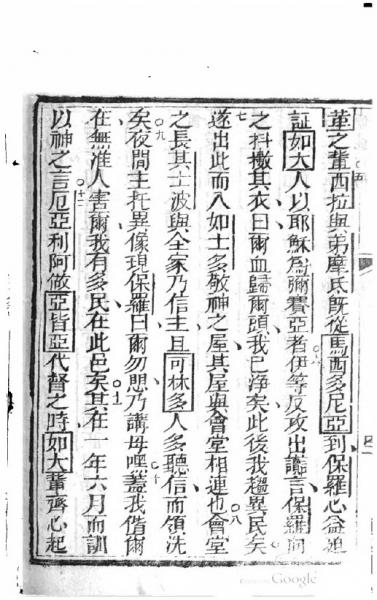 革之輩○五西拉與弟摩氏既從馬西多尼亞到保羅心益迫
証如大人以耶穌爲彌賽亞者○六伊等反攻出讒言保羅向
之抖撒其衣曰爾血歸爾頭我已淨矣此後我趨異民矣
七遂出此而入如士多敬神之屋其屋與會堂相連也○八會堂
之長其士波與全家乃信主且可林多人多聽信而領洗
矣○九夜間主托異像現保羅曰爾勿乃講毋哑○十蓋我偕爾
在無准人害爾我有多民在此邑矣○十一其在一年六月而訓
以神之言○十二厄亞利阿做亞皆亞代督之時如大輩齊心起
Google